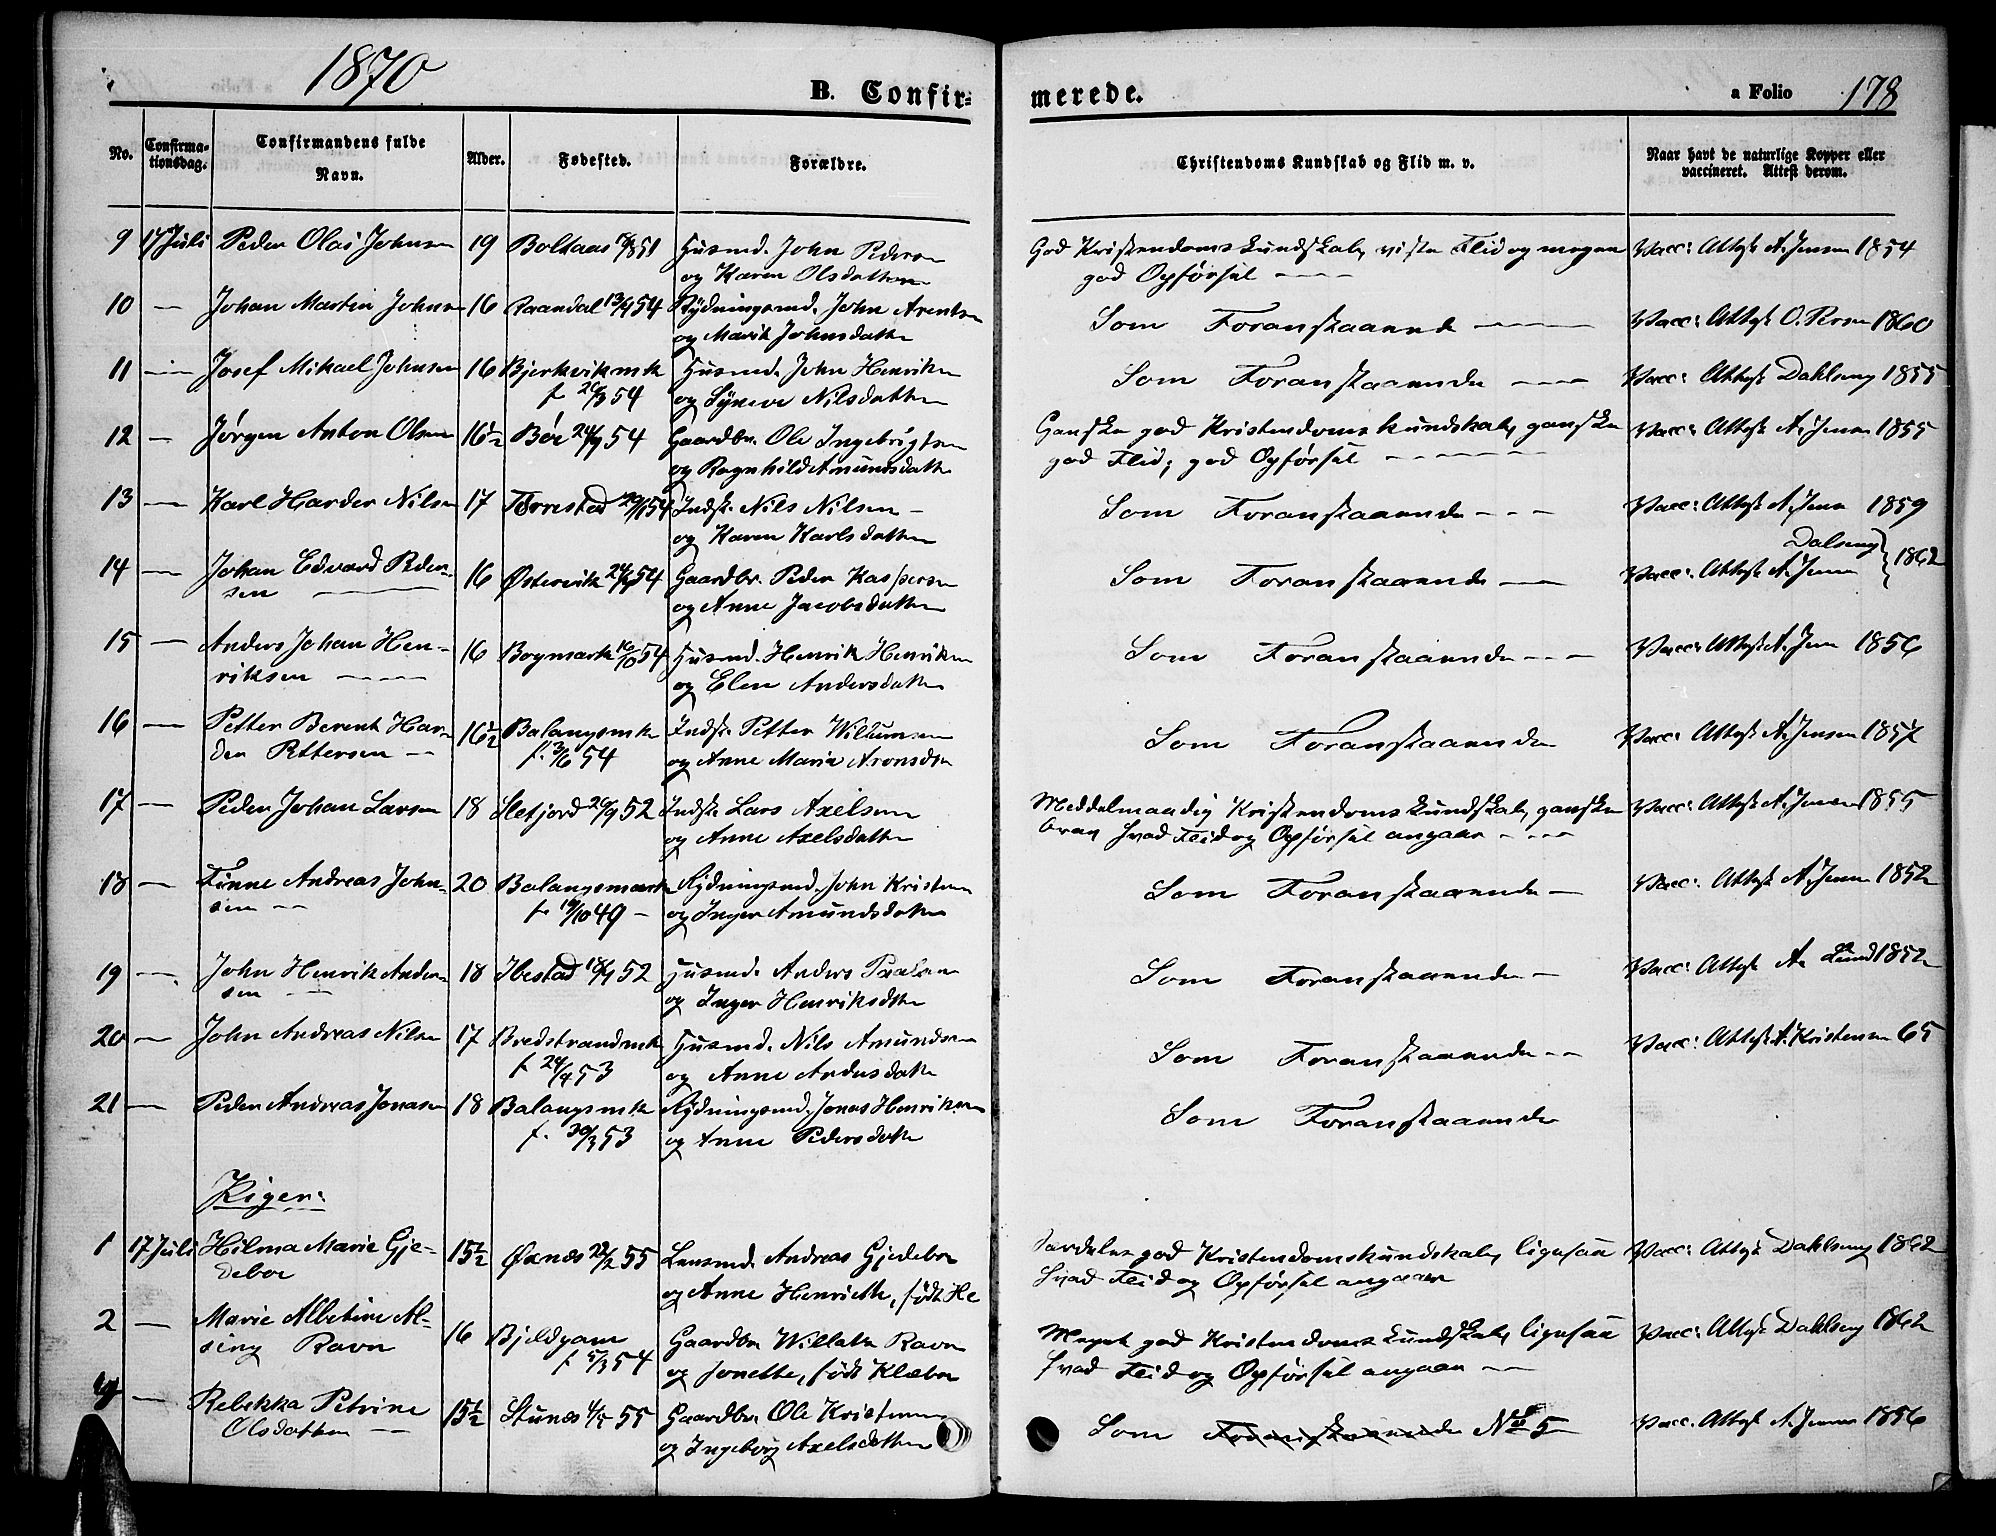 1870
B. Confir=
merede.
a Folio 178
No.
Confirma=
tionsdag.
Confirmandens fulde
Navn.
Alder.
Fødested.
Forældre.
Christendoms Kundskab og Flid m. v.
Naar havt de naturlige Kopper eller
vaccineret. Attest derom.
9 17 Juli Peder Olai Johnsen 19 Boltaas 51 Husmd. John Pedersen
og Karen Olsdatter
God Kristendomskundskab, Flid og megen Vacc: Attest A. Jensen 1854
god Opførsel
10 — Johan Martin Johnsen 16 Raandal 13/9 54 Rydningsmd. John Arentsen
og Marit Johnsdatter
Som Foranstaaende — Vacc: Attest O. Persen 1860
11 — Josef Mikael Johnsen 16 Bjerkvikmk Husmd. John Henriksen
f. 54 og Syneve Nilsdatter
Som Foranstaaende — Vacc: Attest Dahlseng 1855
12 — Jørgen Anton Olsen 16½ Bøe 24/9 54 Gaardbr. Ole Ingebrigtsen
og Ragnhild Amundsdatter
Ganske god Kristendomskundskab, ganske Vacc: Attest A. Jensen 1855
god Flid, god Opførsel
13 — Karl Harder Nilsen 17 Tørrestad 54 Indst. Nils Nilsen —
og Karen Karlsdatter
Som Foranstaaende — Vacc: Attest A. Jensen 1859
14 — Johan Edvard Peder- 16 Østervik 54 Gaardbr. Peder Kaspersen
sen — og Anne Jacobsdatter
Som Foranstaaende — Vacc: Attest A. Jensen Dalseng 1862
15 — Anders Johan Hen- 16 Bogmark 16/10 54 Husmd. Henrik Henriksen
riksen — og Elen Andersdatter
Som Foranstaaende — Vacc: Attest A. Jensen 1856
16 — Petter Berent Har- 16½ Balangsmk Indst. Petter Willumsen
der Pettersen — f. 3/6 54 og Anne Maria Aronsdtr
Som Foranstaaende Vacc: Attest A. Jensen 1857
17 — Peder Johan Larsen 18 Slefjord 52 Indst. Lars Axelsen
og Anne Axelsdatter
Meddelmaadig Kristendomskundskab, ganske Vacc: Attest A. Jensen 1855
brav hvad Flid og Opførsel angaar
18 — Finne Andreas John- 20 Balangsmark Rydningsmd. John Kristensen
sen — f. 19/10 49 — og Inger Amundsdatter
Som Foranstaaende — Vacc: Attest A. Jensen 1852
19 — John Henrik Ander- 18 Ibestad 52 Husmd. Anders
sen — og Inger Henriksdtr
Som Foranstaaende — Vacc: Attest A. Lund 1852
20 — John Andreas Nilsen 17 Bredstrandmk Husmd. Nils Amundsen
f. 24/4 53 og Anne Andersdatter
Som Foranstaaende — Vacc: Attest A. Kristensen 65
21 — Peder Andreas Jonasen 18 Balangsmk Rydningsmd. Jonas Henriksen
f. 30/3 53 og Anne Pedersdatter
Som Foranstaaende
Piger:
1 17 Juli Hilma Marie Gje- 15½ Øxnæs 22/2 55 Lensmd. Andreas Gjedebo
debo og Anne Henriette, født He
Særdeles god Kristendomskundskab, ligesaa Vacc: Attest Dahlseng 1862
hvad Flid og Opførsel angaar
2 — Marie Albetine Al- 16 Bjeldgam Gaardbr. Willatz Ravn
sing Ravn f. 5/3 54 og Jonette, født Klæbo
Meget god Kristendomskundskab, ligesaa Vacc: Attest Dahlseng 1862
hvad Flid og Opførsel angaar —
— Rebekka Petrine 15½ Stunes 55 Gaardbr. Ole Kristensen
Olsdatter — og Ingeborg Axelsdatter
Som Foranstaaende No 5 Vacc. Attest A. Jensen 1856